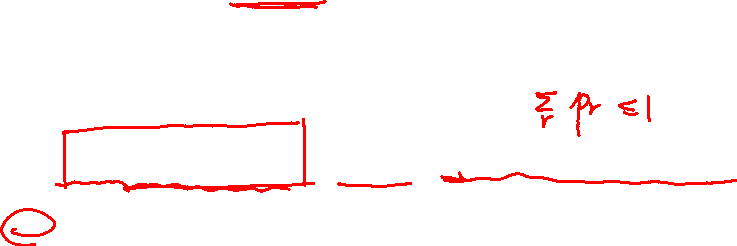 Σ_r p_r ≤ 1